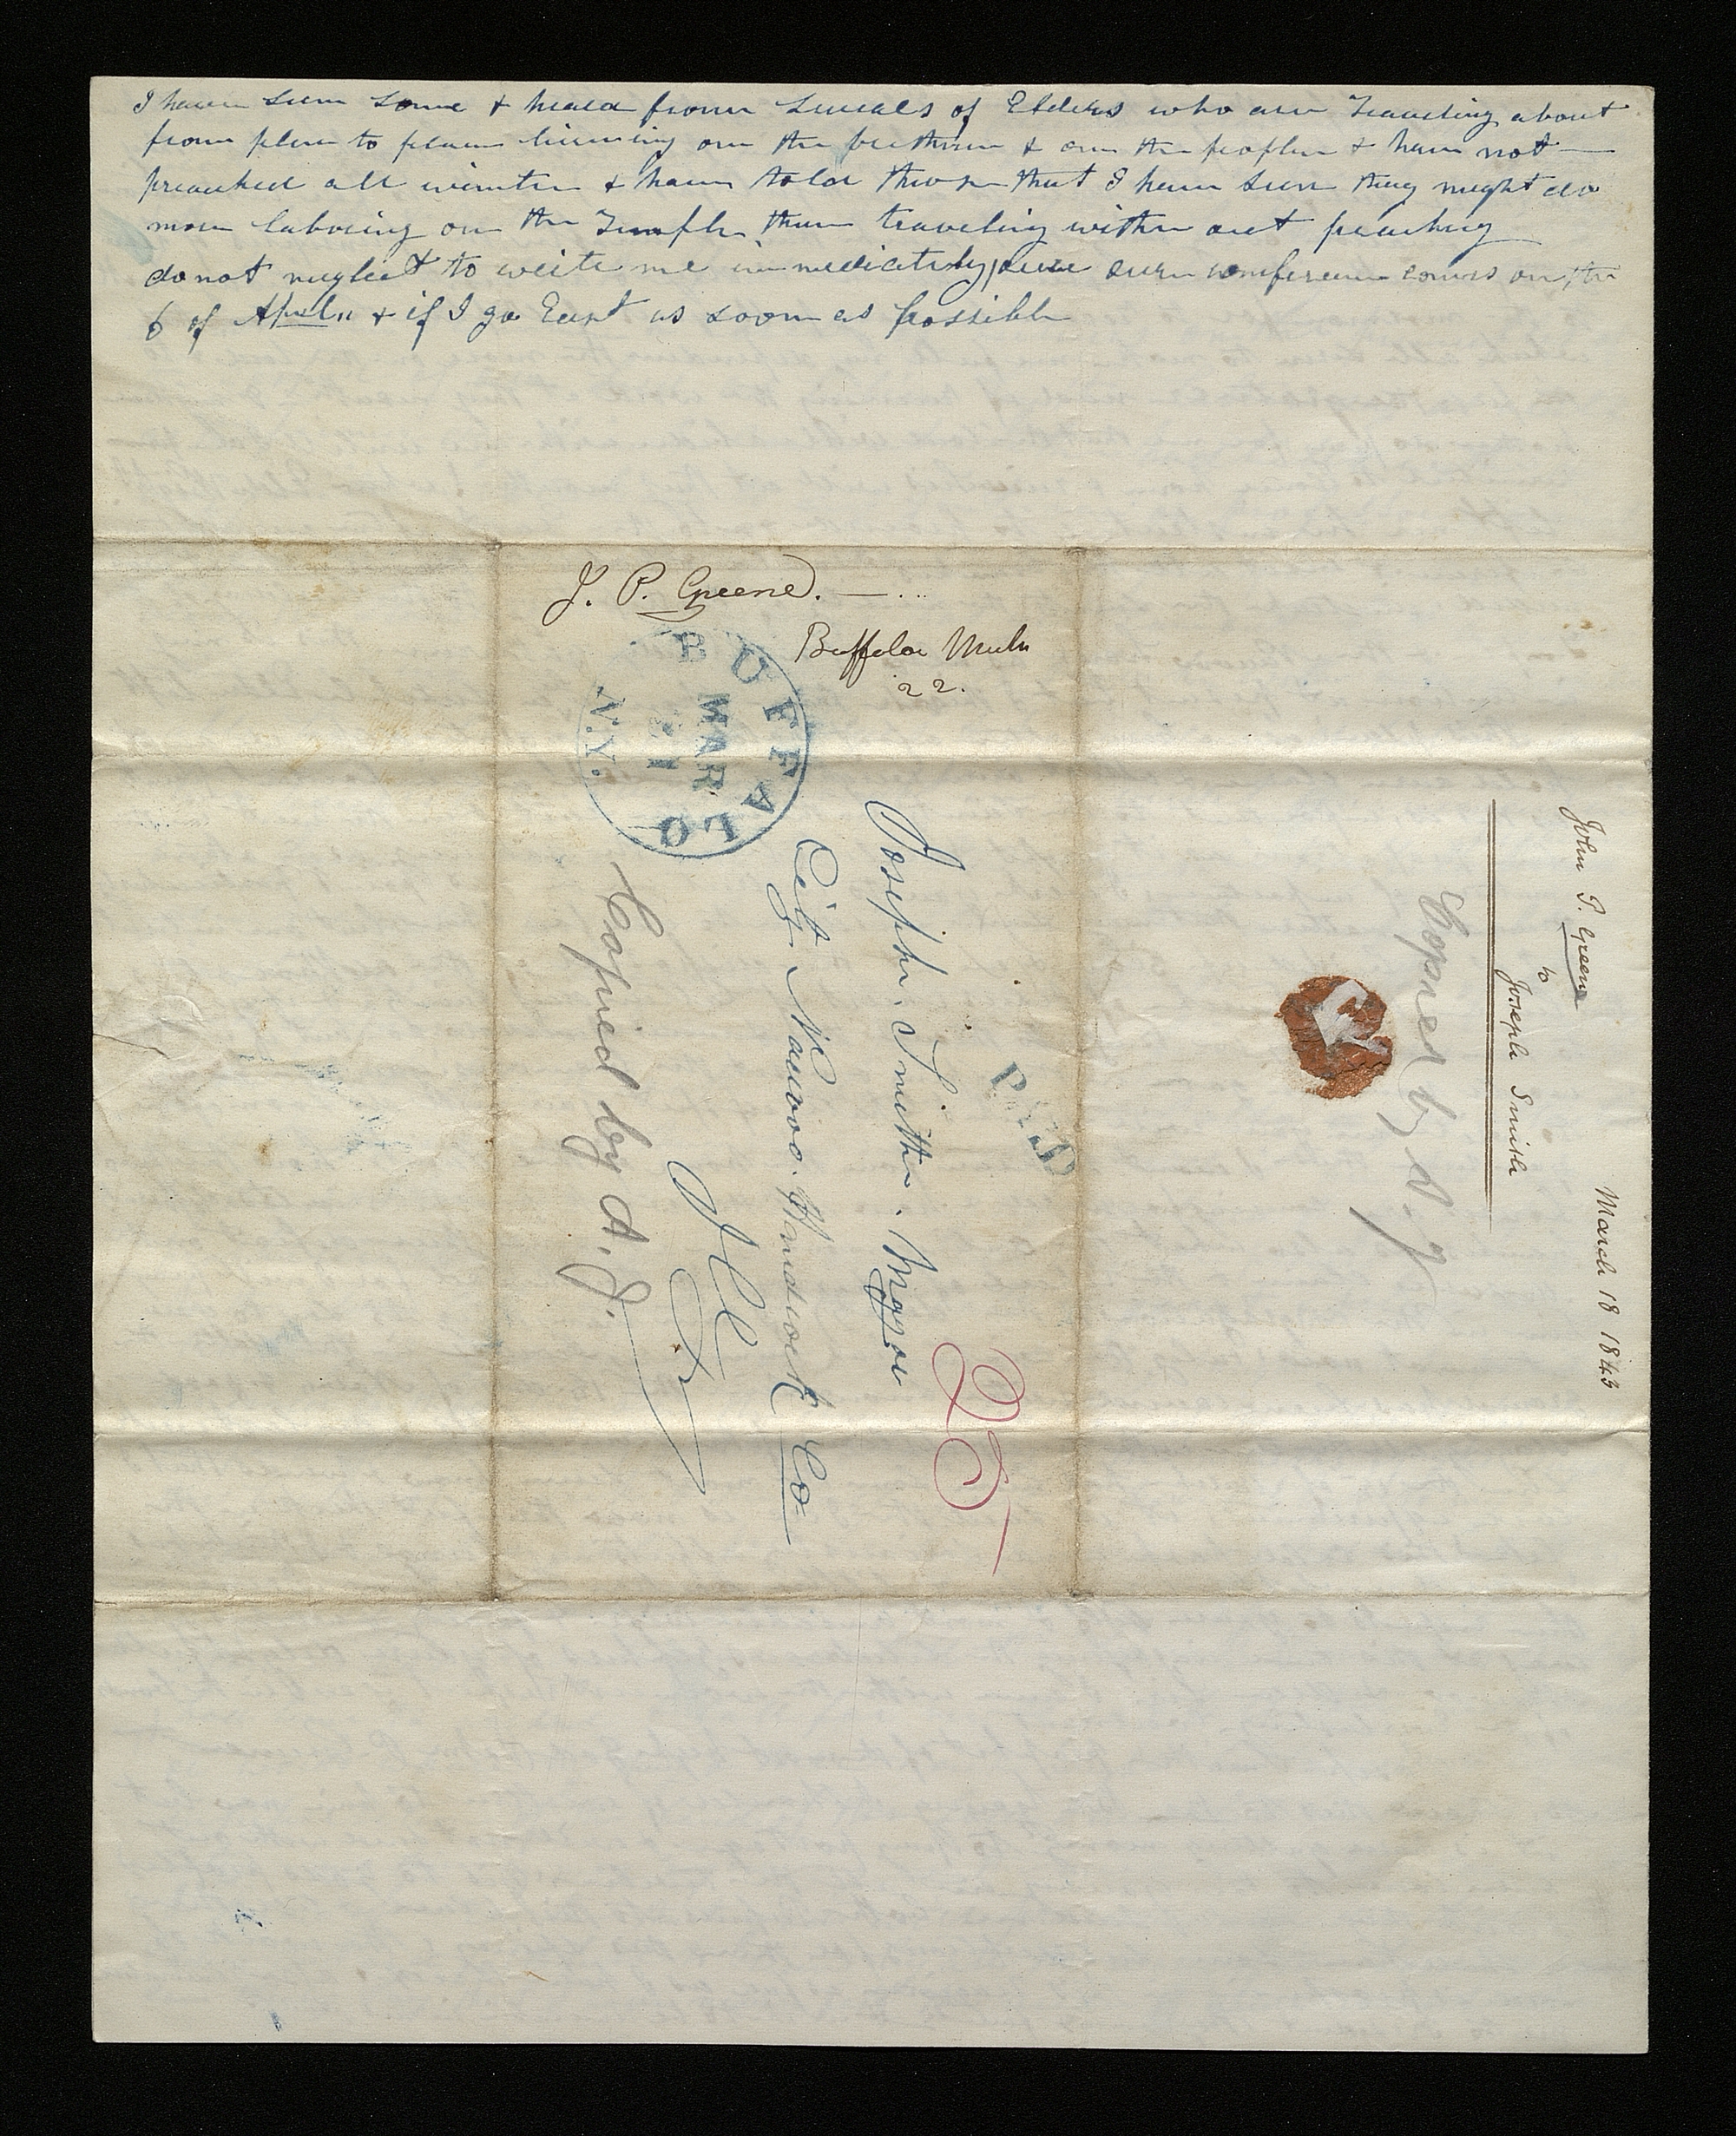 I have seen some & heard from severals of Elders who are Traveling about
from place to place liveing on the brethren & on the people & have not —
preached all winter & have told those that I have seen they might do
more laboring on the Temple than traveling with out preaching
do not neglect to write me immediately, our conference comes on the
6 of April & if I go East as soon as possible
J. P. Greene. —
Buffaloe
22.
BUFFALO
MAR
21
N.Y.
PAID
25
Joseph. Smith. Mayor
City Nauvoo. Handcock Co
Ill
Copied by A. J.
Copied by A. J
John P. Greene
to
Joseph Smith
March 18 1843